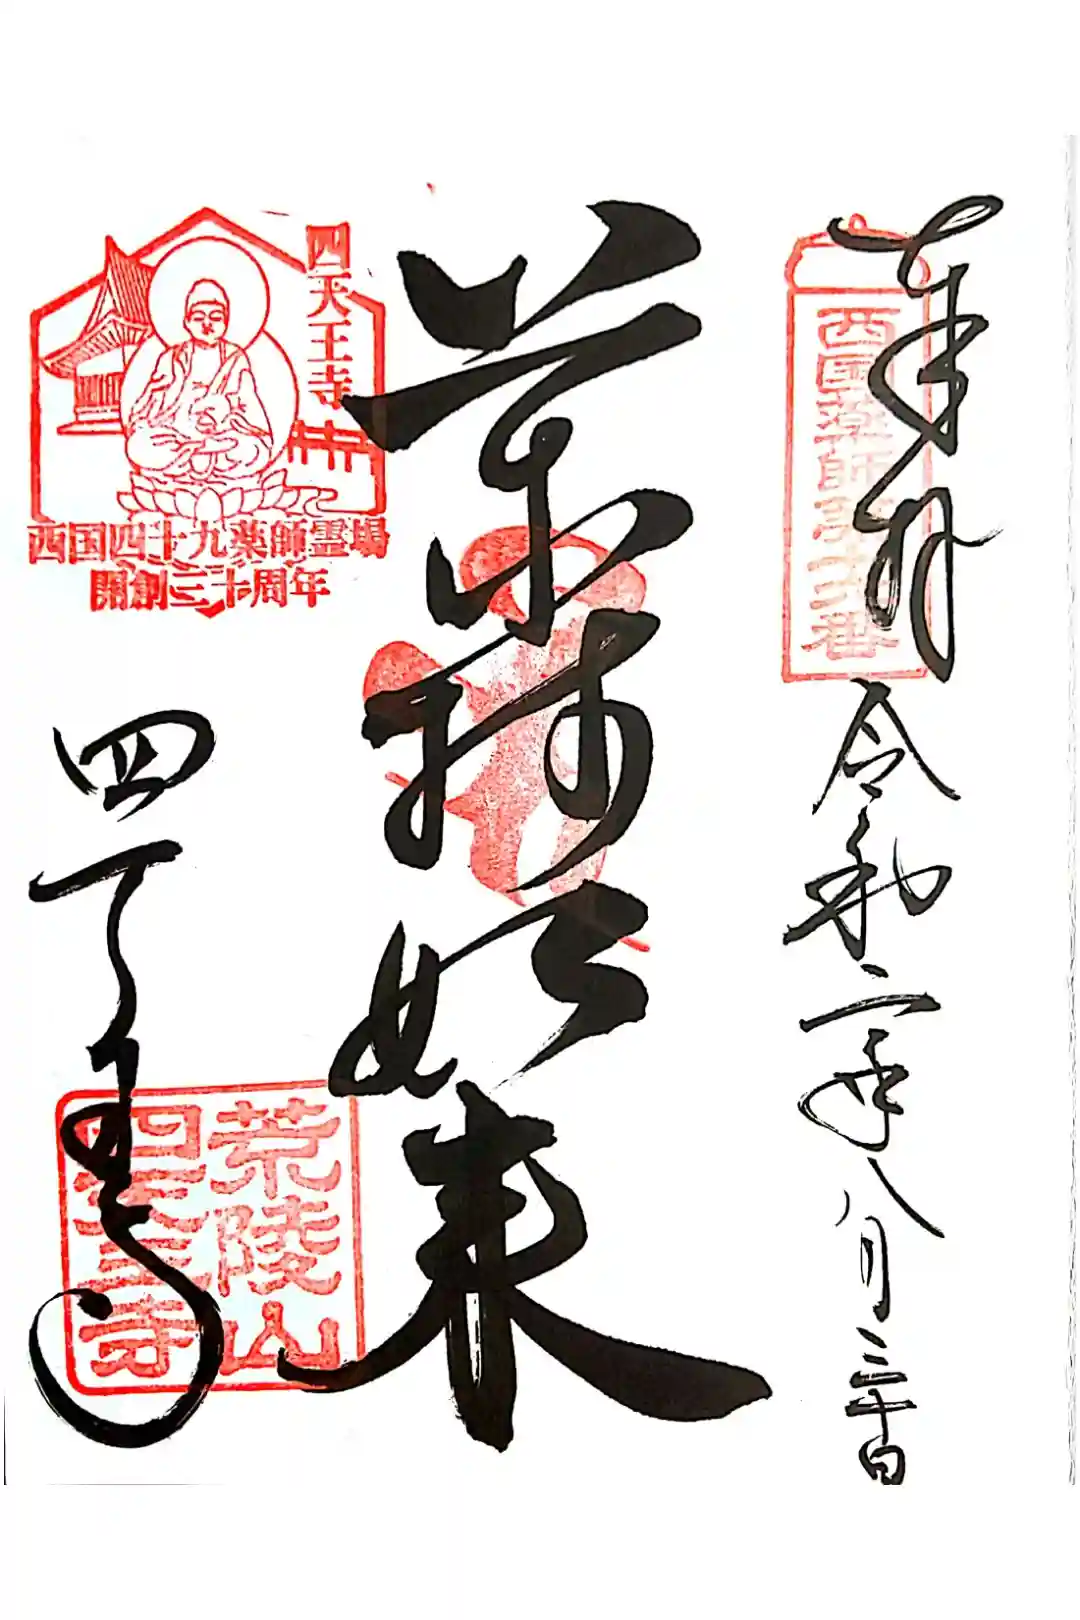 奉拝
令和二年八月三十日
西国薬師第十六番
薬師如来
四天王寺
西国四十九薬師霊場
開創三十周年
四天王寺
荒陵山
四天王寺